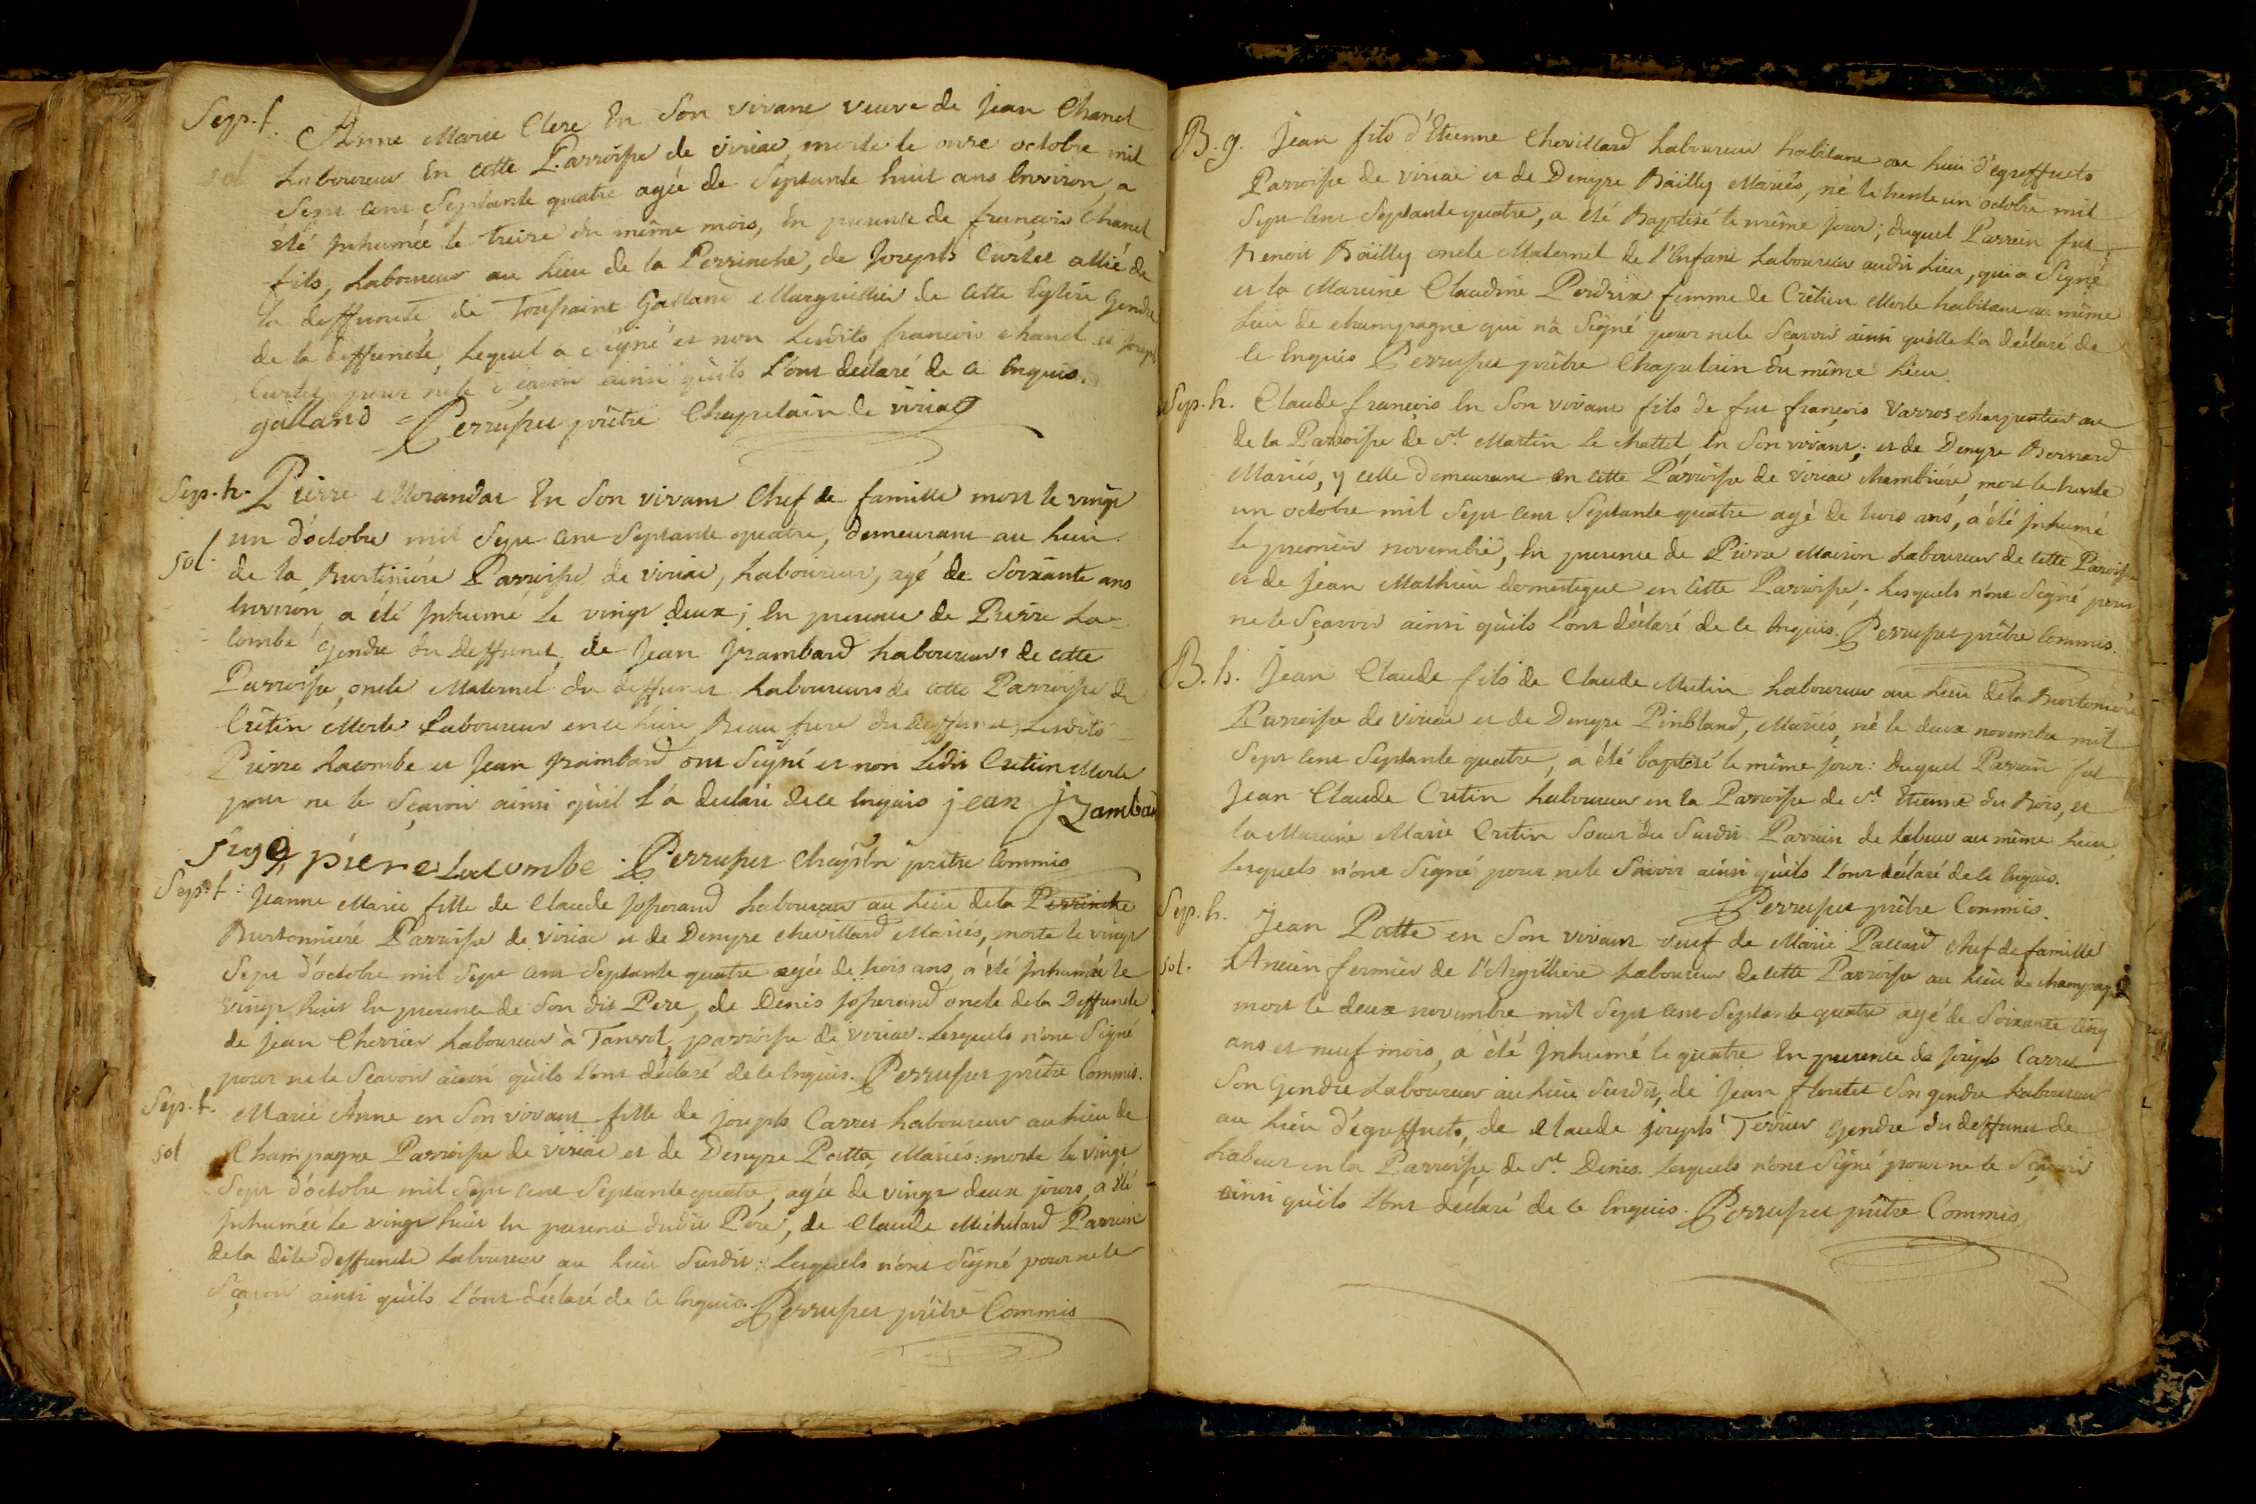 Sep. f. Anne Marie Clere En Son vivant veuve de Jean Chanel
sol Laboureur En cette Parroisse de viriac, morte le onze octobre mil
Sept cent Septante quatre agée de Septante huit ans Environ a
été Inhumée le treize du même mois, En presence de françois Chanel
fils, Laboureur au Lieu de la Perrinche, de Joseph Curtet allié de
la deffuncte de Toussaint Galland Marguillier de cette Eglise Gendre
de la deffuncte, Lequel a signé et non Lesdits francois chanel et joseph
Curtet pour ne le sçavoir ainsi qu'ils L'ont declaré de ce Enquis.
galland Perrusset prêtre Chapelain de viriac
Sep. h. Pierre Morandat En Son vivant Chef de famille mort le vingt
un d'octobre mil Sept cent Septante quatre, demeurant au Lieu
sol. de la Burtiniére Parroisse de viriac, Laboureur, agé de Soixante ans
Environ, a été Inhumé Le vingt deux; En presence de Pierre La=
combe Gendre du Deffunct, de Jean Jzambard Laboureurs de cette
Parroisse, oncle Maternel du deffunct Laboureurs de cette Parroisse de
Cretin Merle Laboureur en ce Lieu, Beau frere du Deffunct; Lesdits
Pierre Lacombe et Jean Jzambard ont Signé et non Ledit Cretin Merle
pour ne le Sçavoir ainsi qu'il L'a declaré de ce Enquis jean jzambard
pierre Lacombe. Perrusset Chapeln prêtre Commis
Sep. f: Jeanne Marie fille de Claude Josserand Laboureur au Lieu de la Perrinche
Burtonnieré Parroisse de viriac et de Denyse Chevillard Mariés, morte le vingt
Sept d'octobre mil Sept cent Septante quatre agée de trois ans, a été Inhumée le
vingt huit En presence de Son dit Pere, de Denis Josserand oncle de la Deffuncte
de Jean Cherrier Laboureur à Tanvol, parroisse de viriac. Lesquels n'ont Signé
pour ne le Scavoir ainsi qu'ils L'ont déclaré de ce Enquis. Perrusset prêtre Commis.
Sep. f. Marie Anne en Son vivant fille de joseph Carret Laboureur au Lieu de
sol Champagne Parroisse de viriac et de Denyse Patte, Mariés: morte le vingt
Sept d'octobre mil Sept cent Septante quatre, agée de vingt deux jours, a été
Inhumée le vingt huit En presence dudit Pere, de Claude Michelard Parrein
de la dite deffuncte Laboureur au Lieu Susdit: Lesquels n'ont Signé pour ne le
Sçavoir ainsi qu'ils L'ont déclaré de ce Enquis. Perrusset prêtre Commis
B. g. Jean fils d'Etienne Chevillard Laboureur habitant au Lieu d'egreffuets
Parroisse de viriac et de Denyse Bailly Mariés, né le trente un octobre mil
Sept cent Septante quatre, a été Baptisé le même jour; duquel Parrein fut
Benoit Bailly oncle Maternel de l'Enfant Laboureur audit Lieu, qui a Signé
et la Mareine Claudine Perdrix femme de Crétien Merle habitant au même
Lieu de champagne qui n'a Signé pour ne le Sçavoir ainsi qu'elle L'a déclaré de
le Enquis Perrusset prêtre Chapelain du même Lieu.
Sep. h. Claude françois En Son vivant fils de fut françois Varros charpentier au
de la Parroisse de St. Martin Le chattel En Son vivant; et de Denyse Bernard
Mariés, y celle demeurant en cette Parroisse de viriac chambriére, mort le trente
un octobre mil Sept cent Septante quatre agé de trois ans, a été Inhumé
Le premier novembre, En presence de Pierre Mairon Laboureur de cette Parroisse
et de Jean Mathieu domestique en cette Parroisse; Lesquels n'ont Signé pour
ne le Sçavoir ainsi qu'ils L'ont déclaré de ce Enquis. Perrusset prêtre Commis.
B. h. Jean Claude fils de Claude Mutin Laboureur au Lieu de la Burtonniere
Parroisse de viriac et de Denyse Pinbland, Mariés, né le deux novembre mil
Sept cent Septante quatre, a été baptisé le même jour: Duquel Parrein fut
Jean Claude Cretin Laboureur en la Parroisse de St. Etienne du Bois, et
la Mareine Marie Cretin Soeur du Susdit Parrein de Labeur au même Lieu,
Lesquels n'ont Signé pour ne le Savoir ainsi qu'ils L'ont déclaré de ce Enquis.
Perrusset prêtre Commis.
Sep. h. Jean Patte en Son vivant veuf de Marie Pallard chef de famille
sol. Ancien fermier de l'Argilliere Laboureur de cette Parroisse au Lieu de champagne
mort le deux novembre mil Sept cent Septante quatre agé de Soixante cinq
ans et neuf mois, a été Inhumé le quatre En presence de joseph Carret
Son Gendre Laboureur au Lieu Susdit, de Jean floutet Son gendre Laboureur
au Lieu d'égreffuets, de Claude joseph Terrier Gendre du deffunct de
Labeur en la Parroisse de St. Denis. Lesquels n'ont Signé pour ne le Sçavoir
ainsi qu'ils L'ont déclaré de ce Enquis. Perrusset prêtre Commis